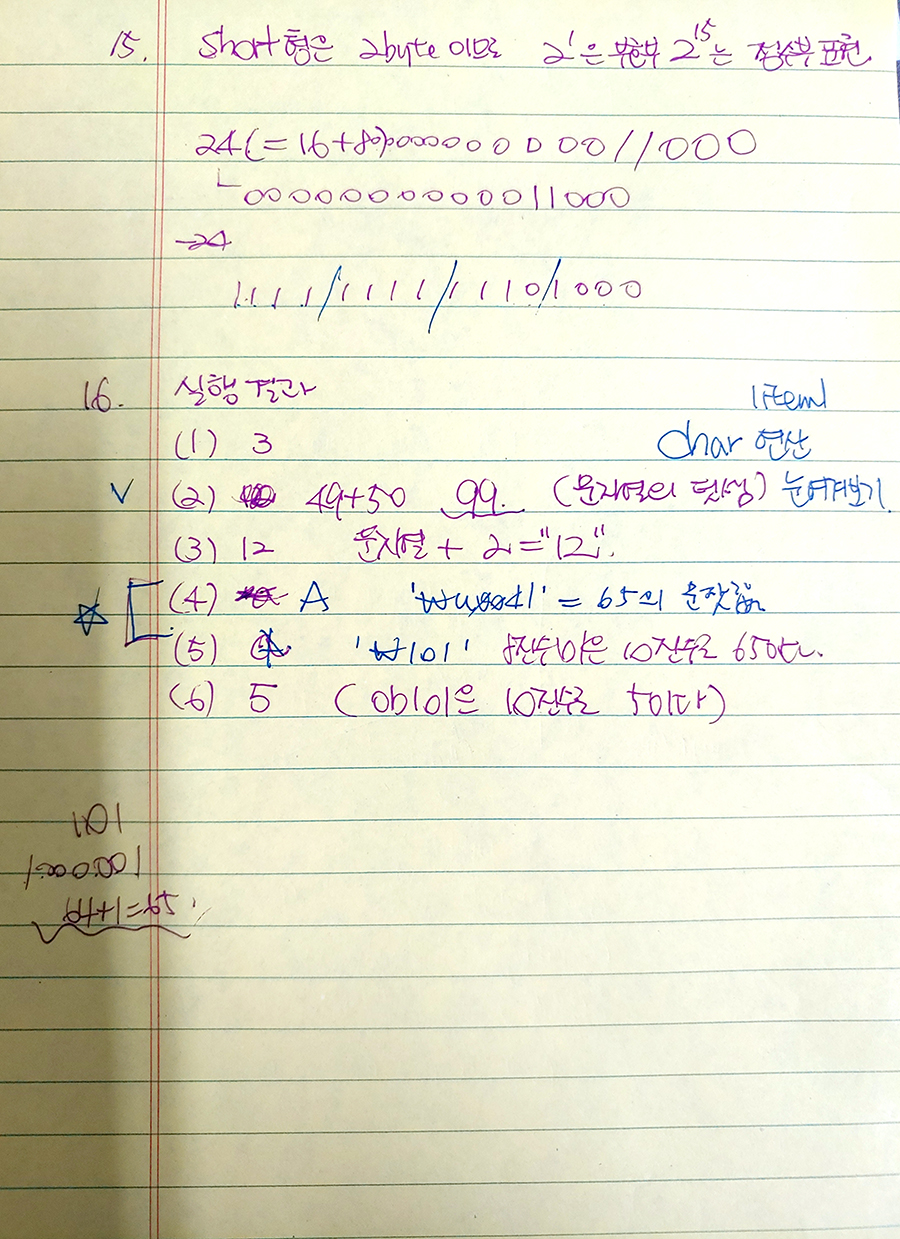 15. short형은 2byte 이므로 2¹은 부호부 2¹⁵는 정수부 표현
24(=16+8) 00000000011000
0000000000011000
-24
1111/1111/1110/1000
16. 실행 결과 item1
(1) 3 char 연산
√ (2) 49+50 99. (문자열의 덧셈) 눈여겨보기
(3) 12 문자열 + 2="12".
☆ (4) A '₩u0041' = 65의 문잣값
(5) A '₩101' 8진수이은 10진수로 65이다.
(6) 5 (0b101은 10진수로 5이다)
101
1000001
64+1=65